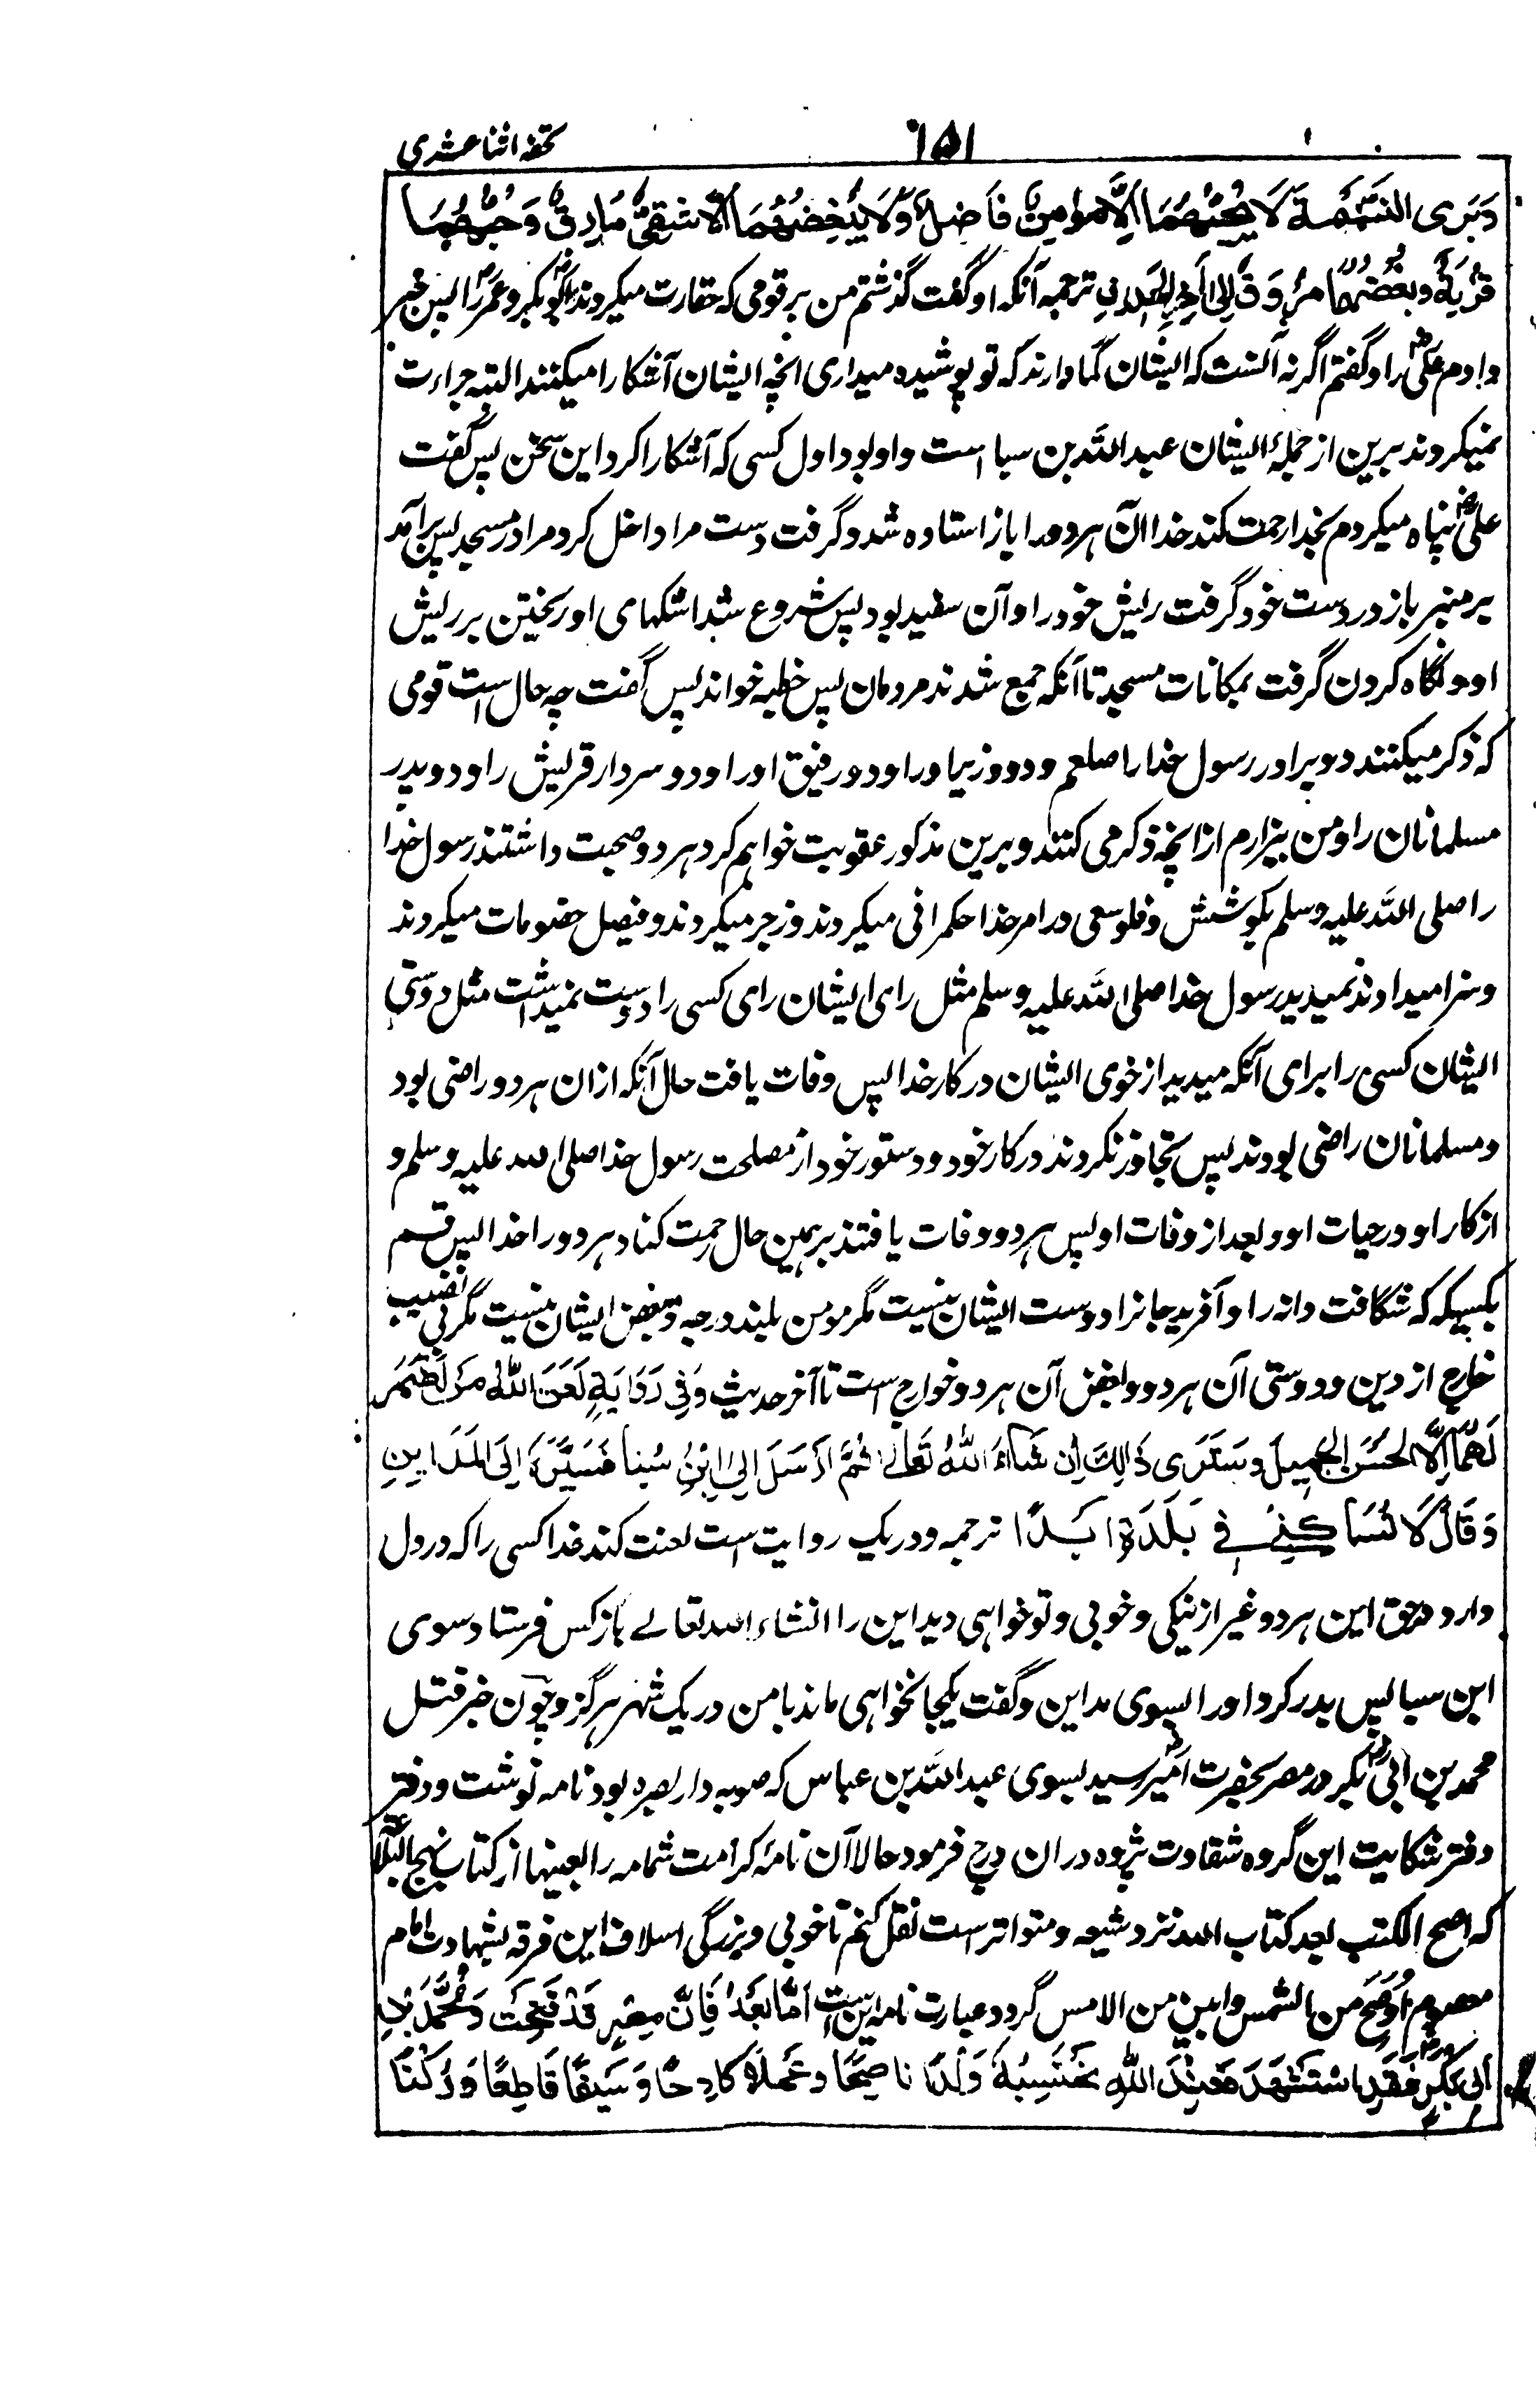 تحفه اثنا عشری
١٥١
وَبَرَى النَّسَمَةَ لَا يُحِبُّهُمَا إِلَّا مُؤمِنٌ فَاضِلٌ وَلَا يُبْغِضُهُمَا إِلَّا شَقِيٌّ مَارِقٌ وَحُبُّهُمَا
قُرْبَةٌ وَبُغْضُهُمَا مُرُوقٌ إِلَى آخِرِ الحَدِيثِ ترجمه آنکه او گفت گذشتم من بر قومی که حقارت میکردند ابوبکر و عمر را پس خبر
دادم علی را و گفتم اگر نه آنست که ایشان گما دارند که تو پوشیده میداری انچه ایشان آشکارا میکنند البته جراءت
نمیکردند برین از جملهٔ ایشان عبد الله بن سبا است و او بود اول کسی که آشکارا کرد این سخن پس گفت
علی پناه میکردم بخدا رحمت کند خدا آن هر دو را باز استاده شد و گرفت دست مرا داخل کرد مرا در مسجد پس برآمد
بر منبر باز در دست خود گرفت ریش خود را و آن سفید بود پس شروع شد اشکهای او ریختن بر ریش
او و نگاه کردن گرفت بمکانات مسجد تا آنکه جمع شدند مردمان پس خطبه خواند پس گفت چه حال است قومی
که ذکر میکنند دو برادر رسول خدا را صلعم و دو وزیر او را و دو رفیق او را و دو سردار قریش را و دو پدر
مسلمانان را و من بیزارم از انچه ذکر می کنند و برین مذکور عقوبت خواهم کرد هر دو صحبت داشتند رسول خدا
را صلی الله علیه وسلم بکوشش و خلو سعی در امر خدا حکمرانی میکردند و زجر میکردند و فیصل خصومات میکردند
و سزا میدادند نمیدید رسول خدا صلی الله علیه وسلم مثل رای ایشان رای کسی را دوست نمیداشت مثل دوستی
ایشان کسی را برای آنکه میدید از خوی ایشان در کار خدا پس وفات یافت حال آنکه ازان هر دو راضی بود
و مسلمانان راضی بودند پس تجاوز نکردند در کار خود و دستور خود از مصلحت رسول خدا صلی الله علیه وسلم و
از کار او در حیات او و بعد از وفات او پس هر دو وفات یافتند بر همین حال رحمت کناد هر دو را خدا پس قسم
بکسیکه که شگافت دانه را و آفرید جانرا دوست ایشان نیست مگر مومن بلند درجه و مبغض ایشان نیست مگر بی نصیب
خارج از دین و دوستی آن هر دو و بغض آن هر دو خوارج است تا آخر حدیث وَفِي رِوَايَةٍ لَعَنَ اللهُ مَنْ أَضْمَرَ
لَهُمَا إِلَّا الحَسَنَ الجَمِيلَ وَسَتَرَى ذَالِكَ إِنْ شَاءَ اللهُ تَعَالى ثُمَّ أَرْسَلَ إِلى ابْنِ سَبَا فَسَيَّرَهُ إِلَى المَدَايِنِ
وَقَالَ لَا تُسَاكِنِّي فِي بَلَدَةٍ أَبَدًا ترجمه و در یک روایت است لعنت کند خدا کسی را که در دل
دارد در حق این هر دو غیر از نیکی و خوبی و تو خواهی دید این را انشاء الله تعالے باز کس فرستاد سوی
ابن سبا پس بدر کرد او را بسوی مداین و گفت یکجا نخواهی ماند با من در یک شهر هرگز و چون خبر قتل
محمد بن ابی بکر در مصر بحضرت امیر رسید بسوی عبد الله بن عباس که صوبه دار بصره بود نامه نوشت و دفتر
دفتر شکایت این گروه شقاوت پژوه دران درج فرمود حالا آن نامهٔ کرامت شمامه را بعینها از کتاب نهج البلاغة
که اصح الکتب بعد کتاب الله نزد شیعه و متواتر است نقل کنم تا خوبی و بزرگی اسلاف این فرقه بشهادت امام
معصوم اوضح من الشمس و ابین من الامس گردد عبارت نامه این است امَّا بَعْدُ فَإِنَّ مِصْرَ قَدْ فُتِحَتْ وَمُحَمَّدَ بْنَ
أَبِي بَكْرٍ فَقَدِ اسْتُشْهِدَ فَعِنْدَ اللهِ نَحْتَسِبُهُ وَلَدًا نَاصِحًا وَعَمَلًا كَادِحًا وَسَيْفًا قَاطِعًا وَرُكْنًا